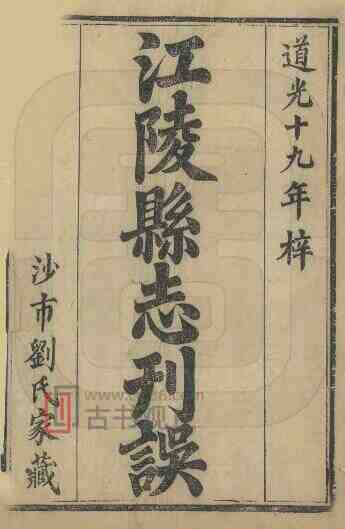 道光十九年梓
江陵縣志刊誤
沙市劉氏家藏
古书